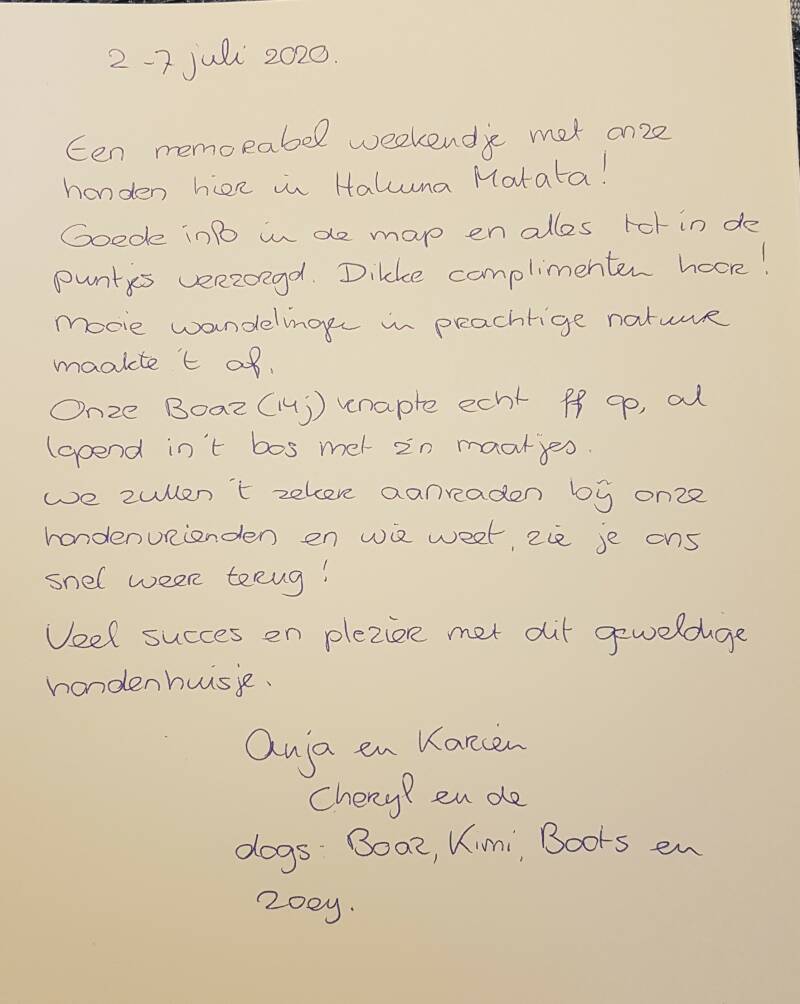 2 - 7 juli 2020.
Een memorabel weekendje met onze
honden hier in Hakuna Matata!
Goede info in de map en alles tot in de
puntjes verzorgd. Dikke complimenten hoor!
Mooie wandelingen in prachtige natuur
maakte 't af.
Onze Boaz (14j) knapte echt ff op, al
lopend in 't bos met z'n maatjes.
We zullen 't zeker aanraden bij onze
hondenvrienden en wie weet, zie je ons
snel weer terug!
Veel succes en plezier met dit geweldige
hondenhuisje.
Anja en Karien
Cheryl en de
dogs: Boaz, Kimi, Boots en
Zoey.